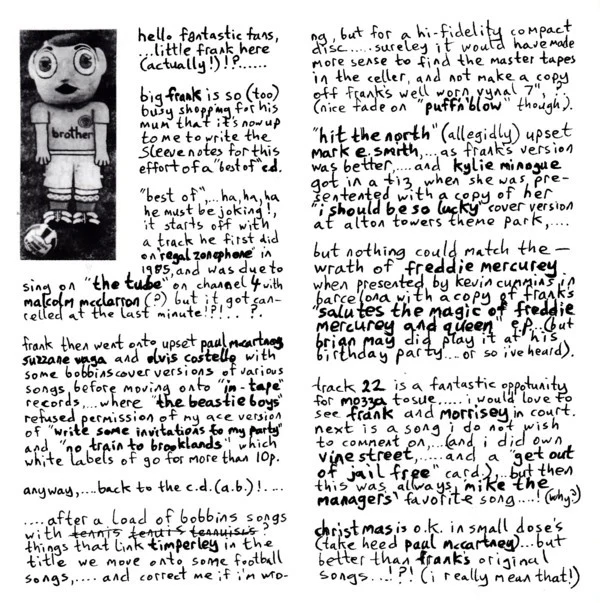 brother
hello fantastic fans,
...little frank here
(actually!)!?......
big frank is so (too)
busy shopping for his
mum that it's now up
to me to write the
sleeve notes for this
effort of a "best of" c.d.
"best of",...ha,ha,ha
he must be joking!,
it starts off with
a track he first did
on "regal zonophone" in
1985, and was due to
sing on "the tube" on channel 4 with
malcolm mcclarron (?) but it got can-
celled at the last minute!?!.. ?.
frank then went onto upset paul mccartney
suzzane vaga and elvis costello with
some bobbins cover versions of various
songs, before moving onto "in-tape"
records,...where "the beastie boys"
refused permission of my ace version
of "write some invitations to my party"
and "no train to brooklands" which
white labels of go for more than 10p.
anyway,....back to the c.d.(a.b.)!. ...
....after a load of bobbins songs
with tennis tenuis tenuisis?
things that link timperley in the
title we move onto some football
songs,.... and correct me if i'm wro-
ng, but for a hi-fidelity compact
disc.....sureley it would have made
more sense to find the master tapes
in the celler, and not make a copy
off frank's well worn vynal 7", !?
(nice fade on "puff'n'blow" though).
"hit the north" (allegidly) upset
mark e. smith,...as frank's version
was better,....and kylie minogue
got in a tiz when she was pre-
sentented with a copy of her
"i should be so lucky" cover version
at alton towers theme park,....
but nothing could match the —
wrath of freddie mercurey
when presented by kevin cummins in
barcelona with a copy of frank's
"salutes the magic of freddie
mercurey and queen" e.p..(but
brian may did play it at his
birthday party....or so i've heard).
track 22 is a fantastic oppotunity
for mozza to sue.....i would love to
see frank and morrisey in court.
next is a song i do not wish
to comment on,...(and i did own
vine street,....and a "get out
of jail free" card.),..but then
this was always 'mike the
managers' favorite song....! (why?)
christmas is o.k. in small dose's
(take heed paul mccartney)...but
better than frank's original
songs...!?! (i really mean that!)